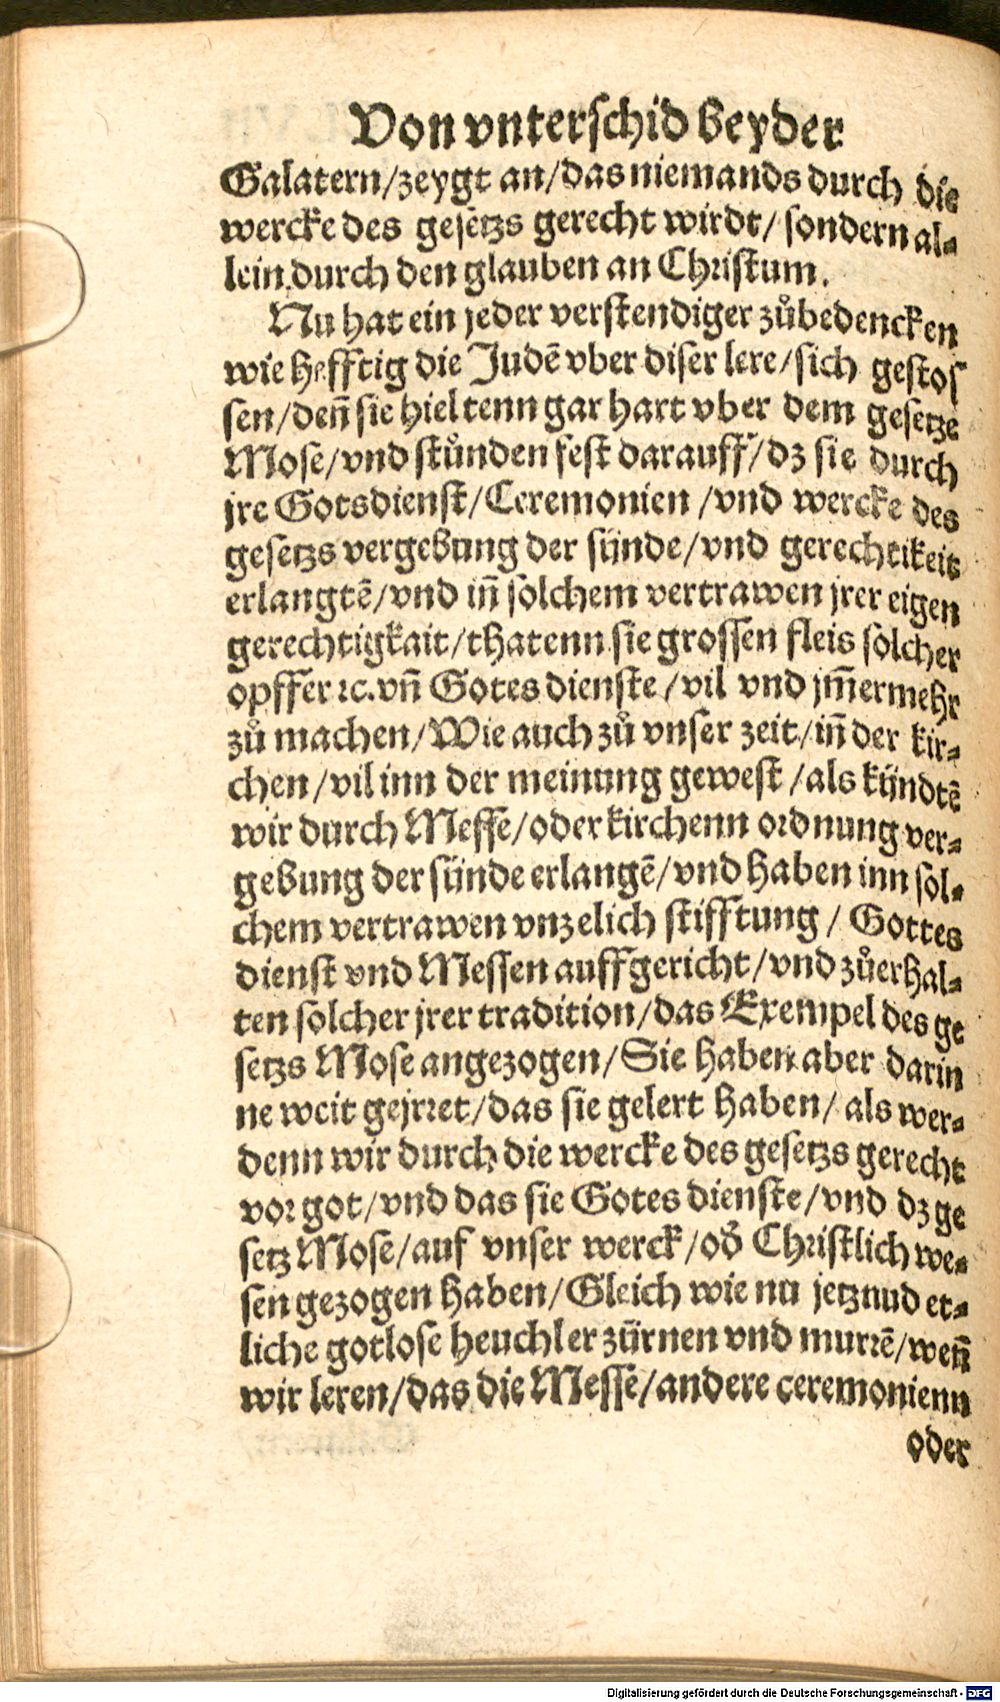 Von vnterschid beyder
Galatern/zeygt an/das niemands durch die
wercke des gesetzs gerecht wirdt/ sondern al-
lein durch den glauben an Christum.
Nu hat ein jeder verstendiger zůbedencken
wie hefftig die Judē vber diser lere/sich gestos
sen/den̄ sie hieltenn gar hart vber dem gesetze
Mose/vnd stůnden fest darauff/dz sie durch
jre Gotsdienst/Ceremonien /vnd wercke des
gesetzs vergebung der sünde/vnd gerechtikeit
erlangtē/vnd in̄ solchem vertrawen jrer eigen
gerechtigkait/thatenn sie grossen fleis solcher
opffer ꝛc. vn̄ Gotes dienste/vil vnd jm̄ermehr
zů machen/Wie auch zů vnser zeit/in̄ der kir-
chen/vil inn der meinung gewest/als kündtē
wir durch Messe/oder kirchenn ordnung ver-
gebung der sünde erlangē/vnd haben inn sol-
chem vertrawen vnzelich stifftung/ Gottes
dienst vnd Messen auffgericht/vnd zůerhal-
ten solcher jrer tradition/das Exempel des ge
setzs Mose angezogen/Sie haben aber darin
ne weit gejrret/das sie gelert haben/ als wer-
denn wir durch die wercke des gesetzs gerecht
vor got/vnd das sie Gotes dienste/vnd dz ge
setz Mose/auf vnser werck/od̕ Christlich we-
sen gezogen haben/Gleich wie nu jetznud et-
liche gotlose heuchler zürnen vnd murrē/wen̄
wir leren/das die Messe/andere ceremonienn
oder
Digitalisierung gefördert durch die Deutsche Forschungsgemeinschaft - DFG